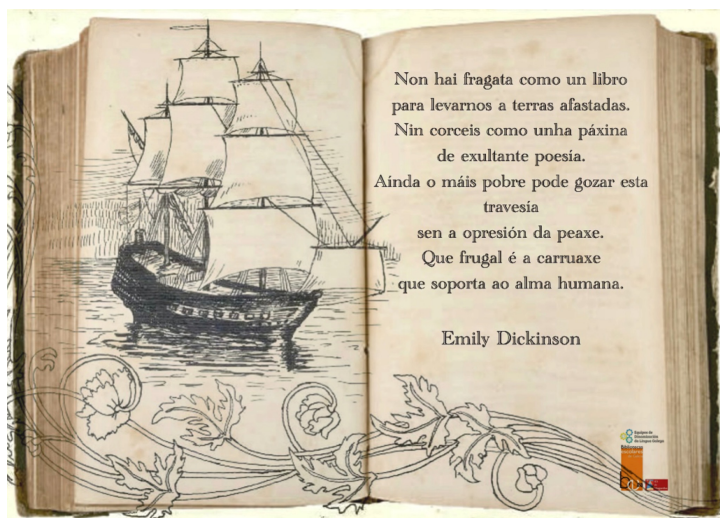 Non hai fragata como un libro
para levarnos a terras afastadas.
Nin corceis como unha páxina
de exultante poesía.
Aínda o máis pobre pode gozar esta
travesía
sen a opresión da peaxe.
Que frugal é a carruaxe
que soporta ao alma humana.
Emily Dickinson
Equipo de
Dinamización
da Lingua Galega